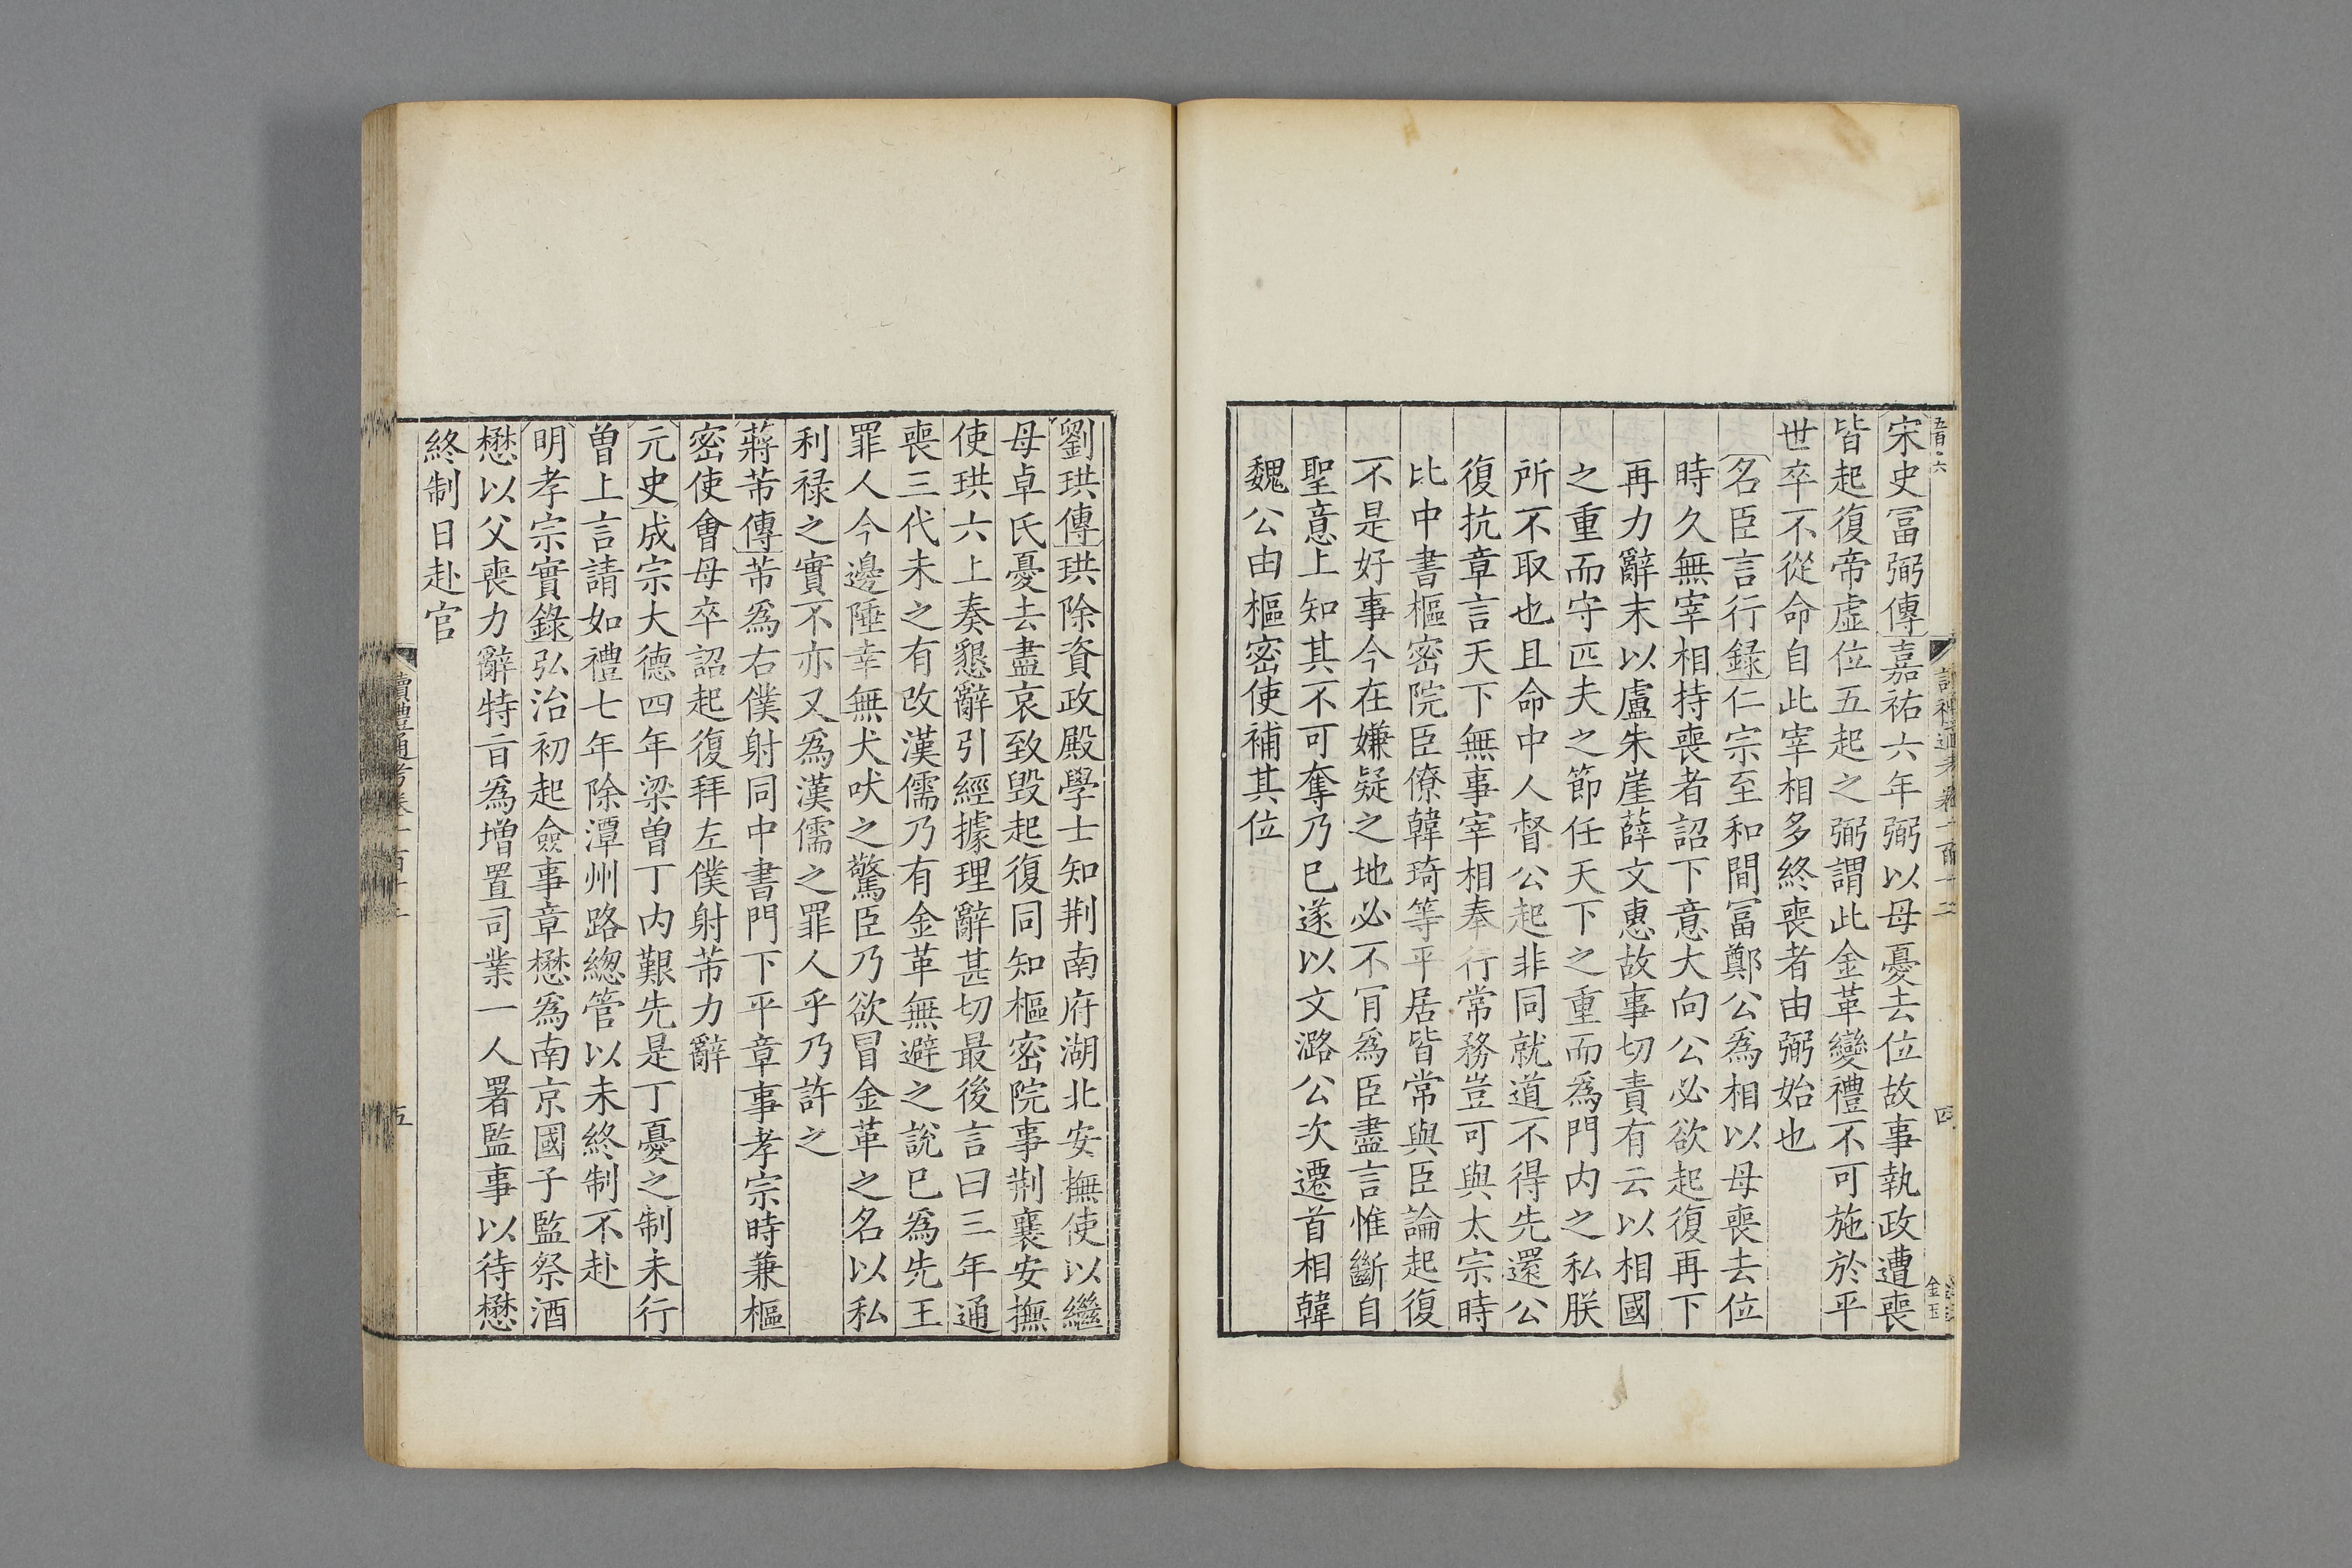 宋史冨弼傳嘉祐六年弼以母憂去位故事執政遭喪
皆起復帝虛位五起之弼謂此金革變禮不可施於平
世卒不從命自此宰相多終喪者由弼始也
名臣言行録仁宗至和間冨鄭公爲相以母喪去位
時久無宰相持喪者詔下意大向公必欲起復再下
再力辭末以盧朱崖薛文惠故事切責有云以相國
之重而守匹夫之節任天下之重而爲門内之私朕
所不取也且命中人督公起非同就道不得先還公
復抗章言天下無事宰相奉行常務豈可與太宗時
比中書樞密院臣僚韓琦等平居皆常與臣論起復
不是好事今在嫌疑之地必不肎爲臣盡言惟斷自
聖意上知其不可奪乃已遂以文潞公次遷首相韓
魏公由樞密使補其位
四
劉珙傳珙除資政殿學士知荆南府湖北安撫使以繼
母卓氏憂去盡哀致毁起復同知樞密院事荆襄安撫
使珙六上奏懇辭引經據理辭甚切最後言曰三年通
喪三代未之有改漢儒乃有金革無避之說已爲先王
罪人今邊陲幸無犬吠之驚臣乃欲冒金革之名以私
利禄之實不亦又爲漢儒之罪人乎乃許之
蔣芾傳芾爲右僕射同中書門下平章事孝宗時兼樞
密使會母卒詔起復拜左僕射芾力辭
元史成宗大德四年梁曾丁内艱先是丁憂之制未行
曾上言請如禮七年除潭州路緫管以未終制不赴
明孝宗實錄弘治初起僉事章懋爲南京國子監祭酒
懋以父喪力辭特旨爲增置司業一人署監事以待懋
終制日赴官
讀禮通考卷一百十二
五